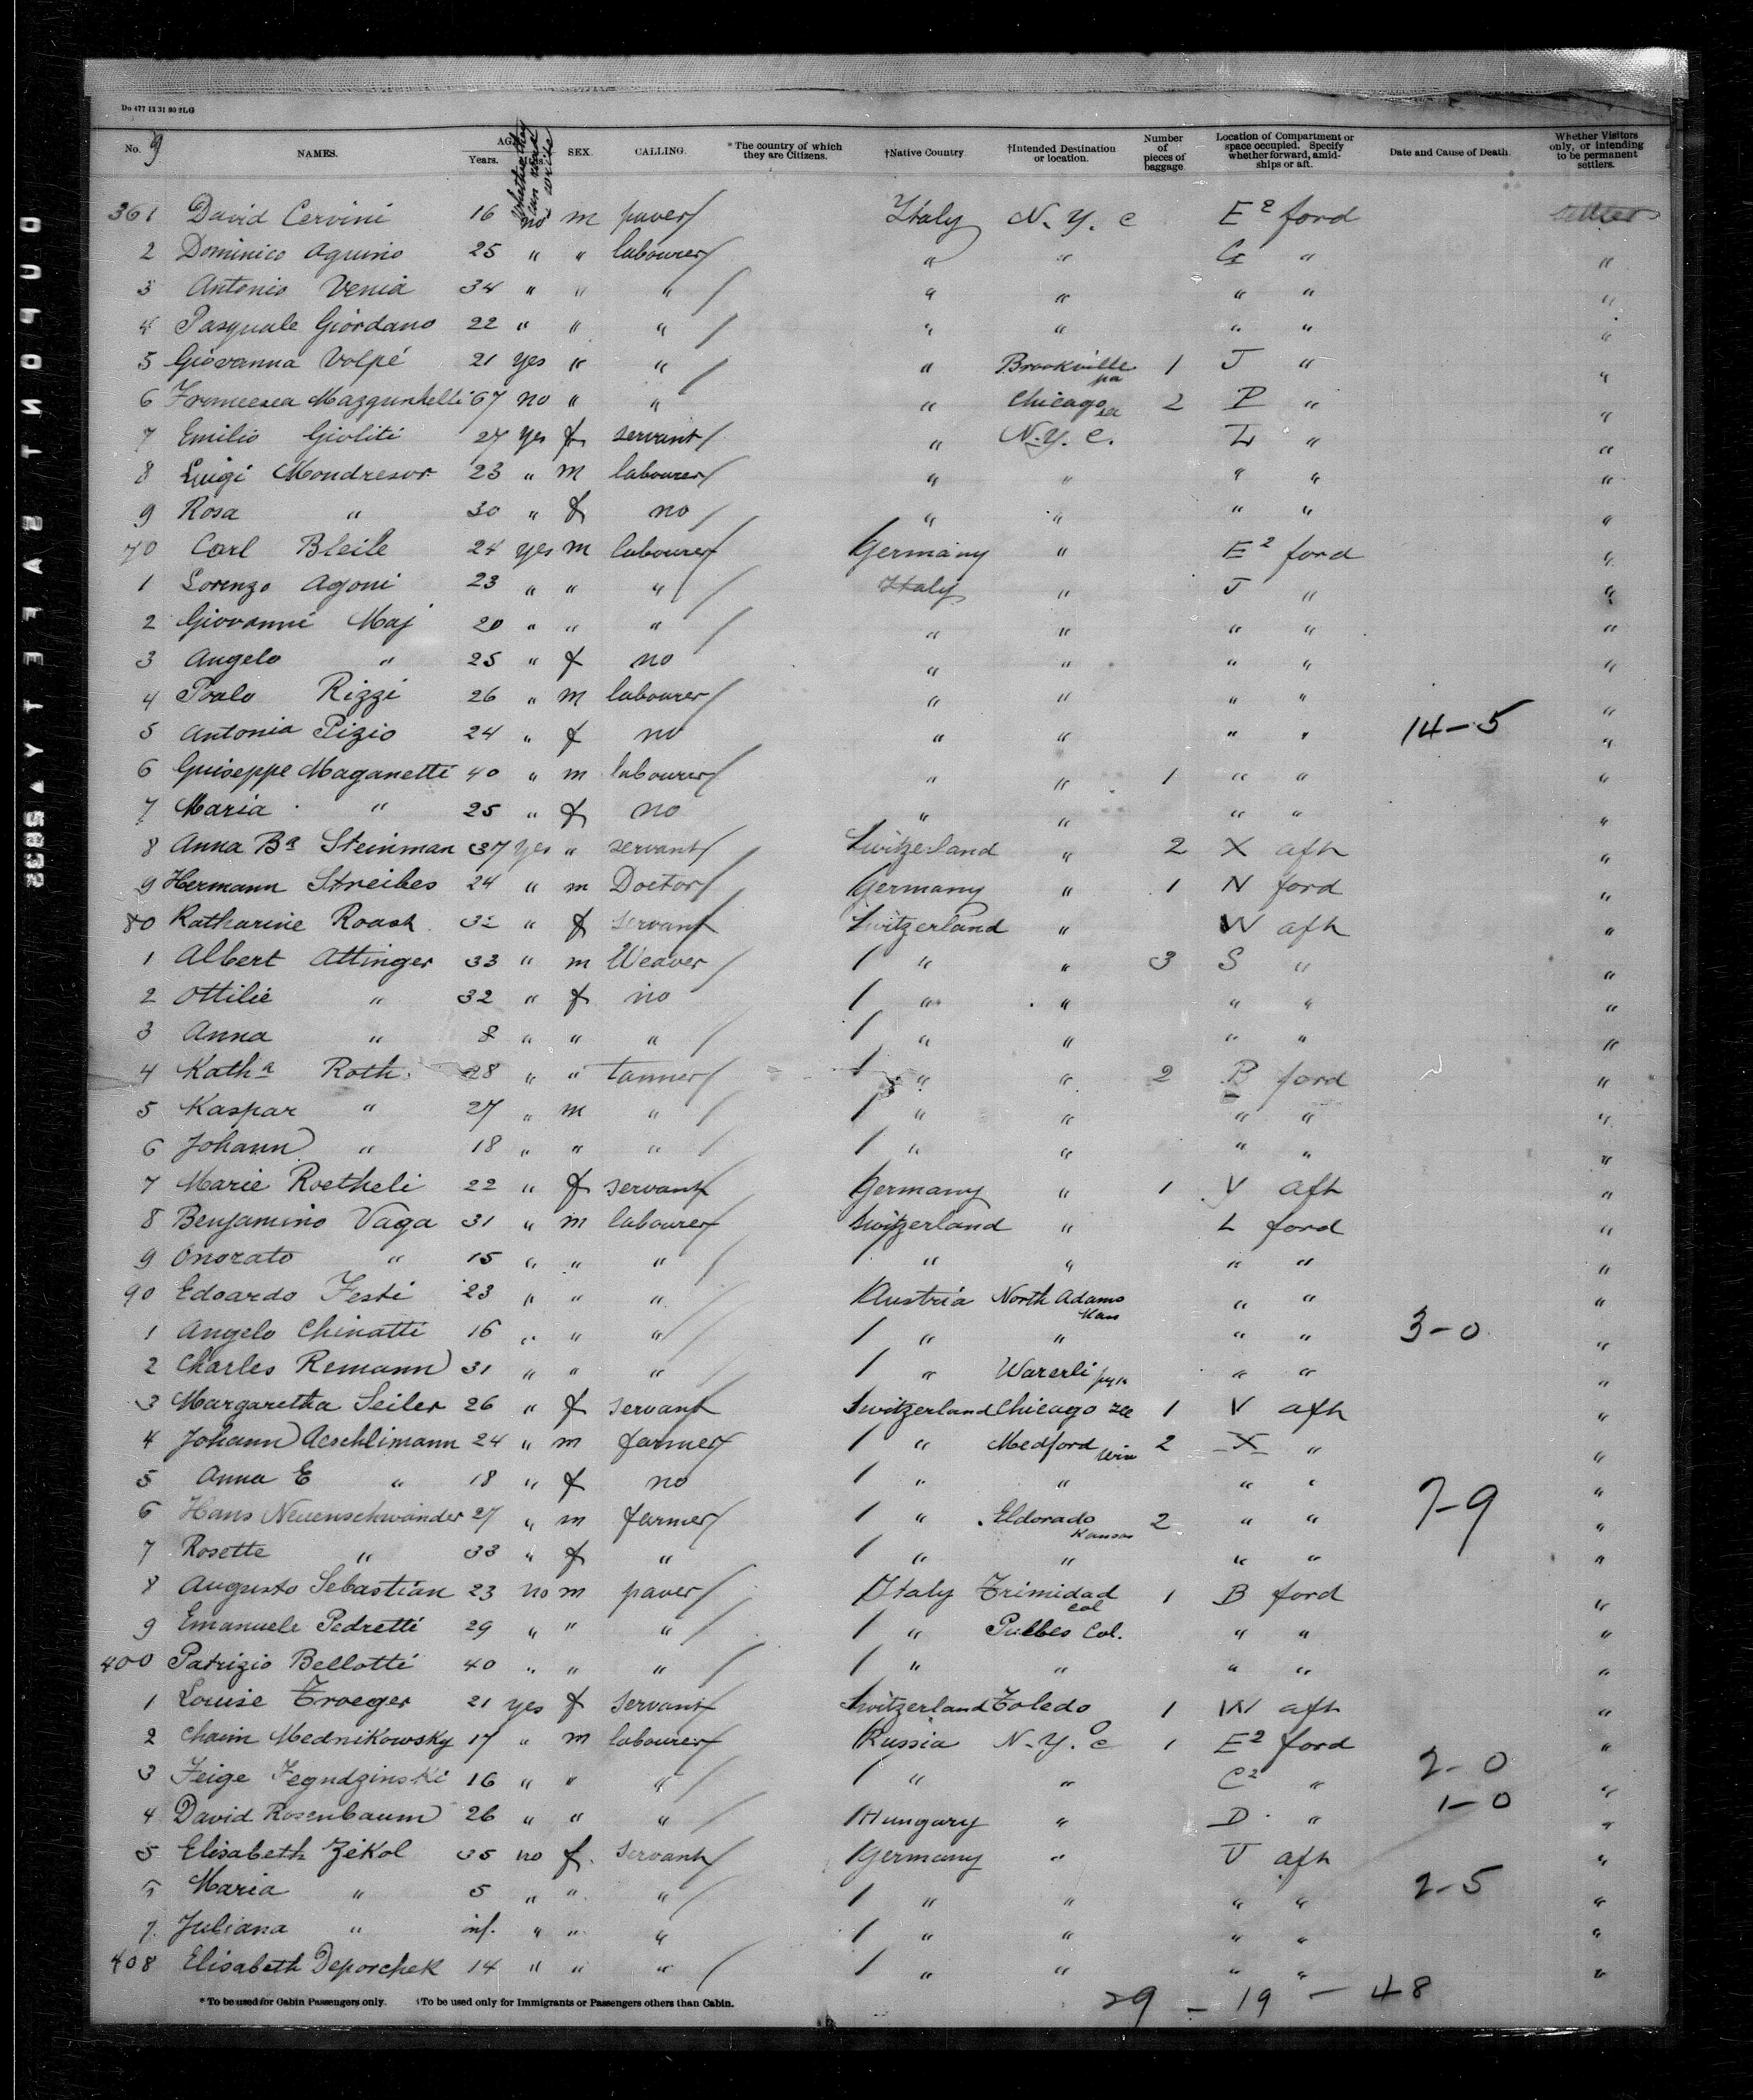 Do 477 12 31 93 2LG
No. 9 NAMES. AGE Years. Whether they can read write SEX. CALLING. * The country of which they are Citizens. †Native Country †Intended Destination or location. Number of pieces of baggage Location of Compartment or space occupied. Specify whether forward, amidships or aft. Date and Cause of Death. Whether Visitors only, or intending to be permanent settlers.
361 David Cervini 16 no m paver Italy N. Y. C E2 ford settler
2 Dominico Aquino 25 " " labourer " " G " "
3 Antonio Venia 34 " " " " " " " "
4 Pasquale Giordano 22 " " " " " " " "
5 Giovanna Volpé 21 yes " " " Brookville pa 1 J " "
6 Francesca 67 no " " " Chicago 2 P " "
7 Emilio Gioliti 27 yes f servant " N.Y. C. L " "
8 Luigi Mondresor 23 " m labourer " " " " "
9 Rosa " 30 " f no " " " " "
70 Carl Bleile 24 yes m labourer Germany " E2 ford "
1 Lorenzo Agoni 23 " " " Italy " J " "
2 Giovanni Maj 20 " " " " " " " "
3 Angelo " 25 " f no " " " " "
4 Poalo Rizzi 26 " m labourer " " " " "
5 Antonia Pizio 24 " f no " " " " 14-5 "
6 Guiseppe Maganetti 40 " m labourer " " 1 " " "
7 Maria " 25 " f no " " " " "
8 Anna Ba Steinman 37 yes " servant Switzerland " 2 X aft "
9 Hermann Streibes 24 " m Doctor Germany " 1 N ford "
80 Katharine Roash 32 " f servant Switzerland " W aft "
1 Albert Attinger 33 " m Weaver " " 3 S " "
2 Ottilie " 32 " f no " " " " "
3 Anna " 8 " " " " " " " "
4 Katha Roth 28 " " tanner " " 2 B ford "
5 Kaspar " 27 " m " " " " " "
6 Johann " 18 " " " " " " " "
7 Marie Roetheli 22 " f servant Germany " 1 V aft "
8 Benjamino Vaga 31 " m labourer Switzerland " L ford "
9 Onorato " 15 " " " " " " " "
90 Edoardo Festi 23 " " " Austria North Adams Mass " " "
1 Angelo Chinatti 16 " " " " " " " 3-0 "
2 Charles Remann 31 " " " " " " "
3 Margaretha Seiler 26 " f servant Switzerland Chicago 1 V aft "
4 Johann Aeschlimann 24 " m farmer " Medford Win 2 X " "
5 Anna E " 18 " f no " " " " "
6 Hans Neuenschwander 27 " m farmer " Eldorado Kansas 2 " " 7-9 "
7 Rosette " 33 " f " " " " " "
8 Augusto Sebastian 23 no m paver Italy Trinidad Col 1 B ford "
9 Emanuele Pedretti 29 " " " " Puebes Col. " " "
400 Patrizio Bellotti 40 " " " " " " " "
1 Louise Troeger 21 yes f servant Switzerland Toledo O 1 W aft "
2 Chaim Mednikowsky 17 " m labourer Russia N. Y. C 1 E2 ford "
3 Feige 16 " " " " " C2 " 2-0 "
4 David Rosenbaum 26 " " " Hungary " D " 1-0 "
5 Elisabeth Zikol 35 no f servant Germany " U aft "
6 Maria " 5 " " " " " " " 2-5 "
7 Juliana " inf. " " " " " " " "
408 Elisabeth Deporchek 14 " " " " " " " "
29 - 19 - 48
* To be used for Cabin Passengers only. †To be used only for Immigrants or Passengers others than Cabin.